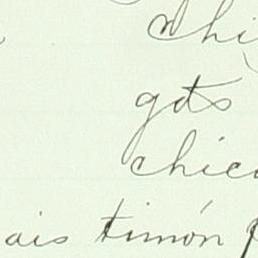 chi
gts
chic
ais timón